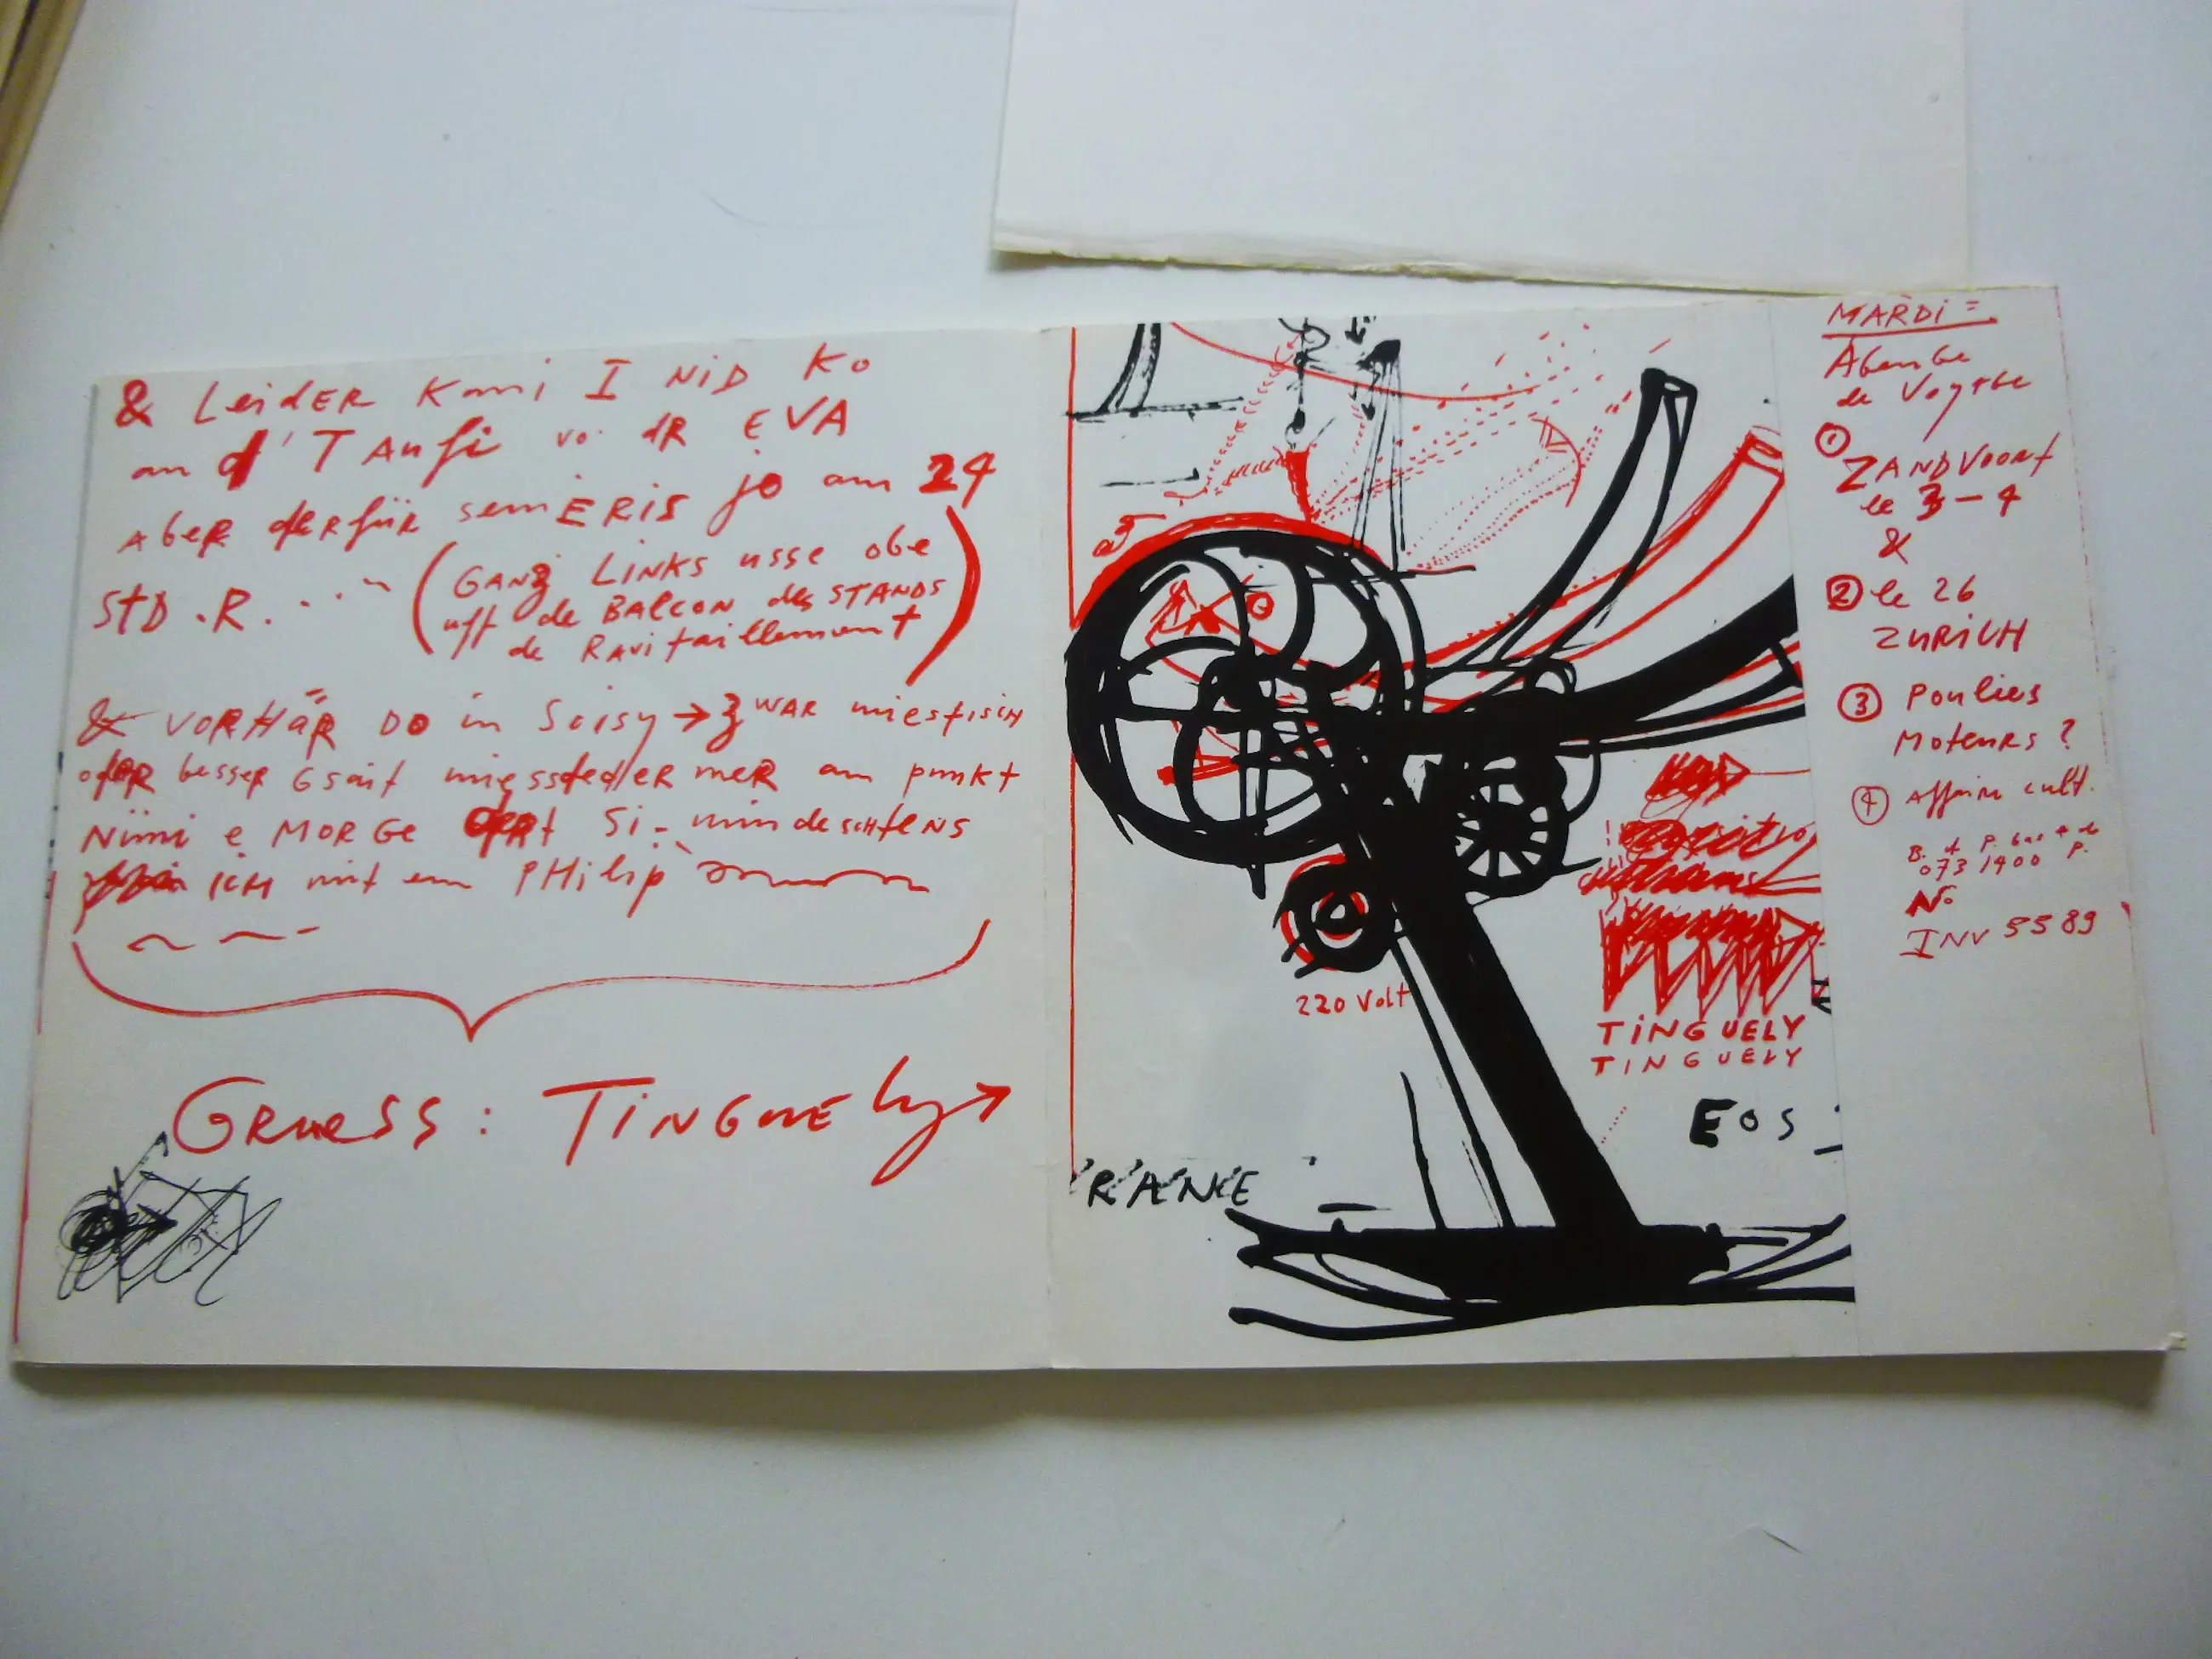 & LeidER Kani I NiD Ko
an d' TAufi vo dR EVA
AbeR derfüR semERIS jo am 24
STD .R. . . . (GANZ LINKS usse obe
uff de BALCON des STANDS
de RAvitaillement)
& VORHäR DO in Soisy → z WAR miestisch
odeR besser Gsait miessted er meR am punkt
Nüni e MORGE dert Si - mindeschtENS
ICH mit em PHilip
GRuESS: TiNGuELy
220 Volt
TiNGUELY
TINGUELY
EOS
RANCE
MARDi =
de Voyage
① ZANDVOORT
le 3-4
&
② le 26
ZURiCH
③ Poulies
Moteurs ?
④ Affaire cult.
073 1900 P.
No
INV 5589